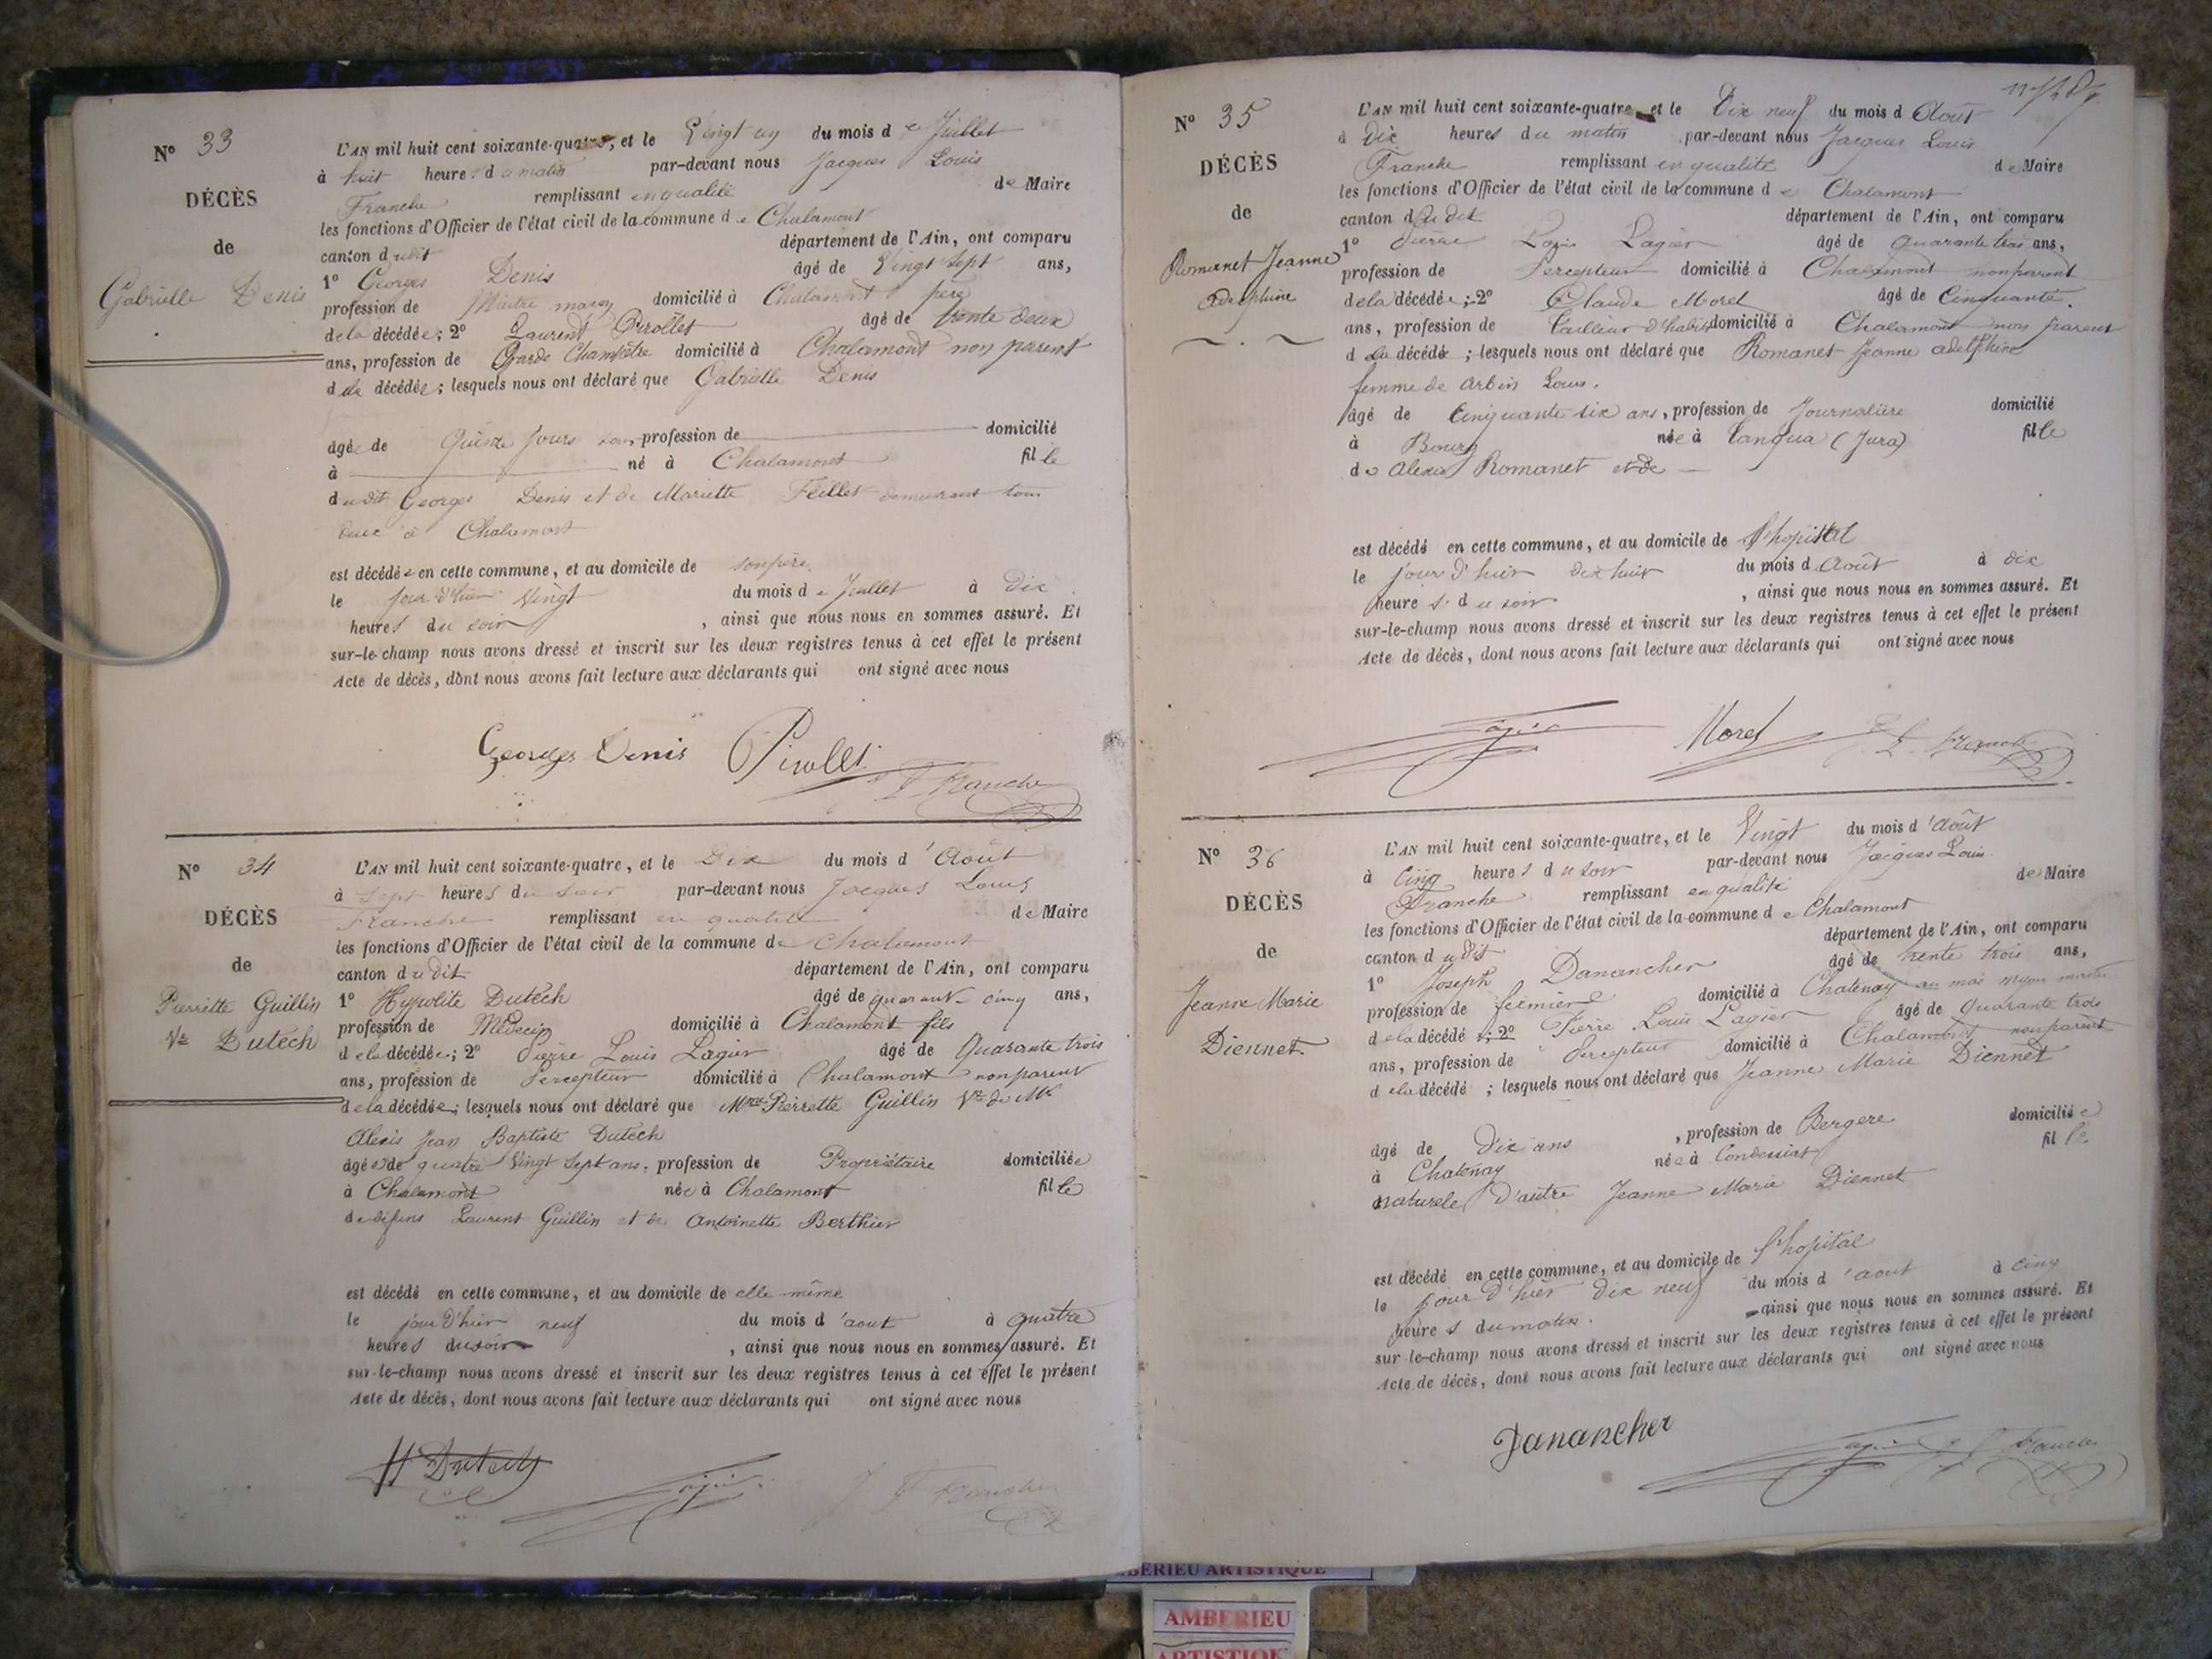 N° 33
DÉCÈS
de
Gabrielle Denis
L'AN mil huit cent soixante-quatre, et le Vingt un du mois de Juillet
à huit heures du matin par-devant nous Jacques Louis
Franche remplissant en qualité de Maire
les fonctions d'Officier de l'état civil de la commune de Chalamont
canton dudit département de l'Ain, ont comparu
1° Georges Denis âgé de Vingt Sept ans,
profession de Maitre maçon domicilié à Chalamont père
de la décédée; 2° Laurent Pirollet âgé de trente deux
ans, profession de Garde Champêtre domicilié à Chalamont non parent
de la décédée; lesquels nous ont déclaré que Gabrielle Denis
âgée de Quinze Jours profession de domicilié
à né à Chalamont fille
dudit Georges Denis et de Mariette Feillet demeurant tous
deux à Chalamont
est décédée en cette commune, et au domicile de son père
le jour d'hier Vingt du mois de Juillet à Dix
heures du soir, ainsi que nous nous en sommes assuré. Et
sur-le-champ nous avons dressé et inscrit sur les deux registres tenus à cet effet le présent
Acte de décès, dont nous avons fait lecture aux déclarants qui ont signé avec nous
Georges Denis Pirollet Franche
N° 34
DÉCÈS
de
Pierrette Guillin
Ve Dutech
L'AN mil huit cent soixante-quatre, et le Dix du mois d'Août
à Sept heures du soir par-devant nous Jacques Louis
Franche remplissant en qualité de Maire
les fonctions d'Officier de l'état civil de la commune de Chalamont
canton dudit département de l'Ain, ont comparu
1° Hypolite Dutech âgé de quarante cinq ans,
profession de Médecin domicilié à Chalamont fils
de la décédée; 2° Pierre Louis Lagier âgé de Quarante trois
ans, profession de Percepteur domicilié à Chalamont non parent
de la décédée; lesquels nous ont déclaré que Mme Pierrette Guillin Ve de Mr
Alexis Jean Baptiste Dutech
âgée de quatre Vingt Sept ans, profession de Propriétaire domiciliée
à Chalamont née à Chalamont fille
de défuns Laurent Guillin et de Antoinette Berthier
est décédé en cette commune, et au domicile de elle même
le jour d'hier neuf du mois d'aout à quatre
heures du soir, ainsi que nous nous en sommes assuré. Et
sur-le-champ nous avons dressé et inscrit sur les deux registres tenus à cet effet le présent
Acte de décès, dont nous avons fait lecture aux déclarants qui ont signé avec nous
H Dutech Lagier Franche
N° 35
DÉCÈS
de
Romanet Jeanne
Adelphine
L'AN mil huit cent soixante-quatre et le Dix neuf du mois d Août
à Dix heures du matin par-devant nous Jacques Louis
Franche remplissant en qualité de Maire
les fonctions d'Officier de l'état civil de la commune de Chalamont
canton dudit département de l'Ain, ont comparu
1° Pierre Louis Lagier âgé de quarante trois ans,
profession de Percepteur domicilié à Chalamont non parent
de la décédée; 2° Claude Morel âgé de Cinquante
ans, profession de Tailleur d'habits domicilié à Chalamont non parent
d la décédée; lesquels nous ont déclaré que Romanet Jeanne adelphine
femme de Arbin Louis.
âgé de Cinquante six ans, profession de Journalière domicilié
à Bourg née à Tanqua (Jura) fille
de Alexis Romanet et de —
est décédé en cette commune, et au domicile de l'hopital
le jour d'hier dix huit du mois d Août à dix
heures du soir, ainsi que nous nous en sommes assuré. Et
sur-le-champ nous avons dressé et inscrit sur les deux registres tenus à cet effet le présent
Acte de décès, dont nous avons fait lecture aux déclarants qui ont signé avec nous
Lagier Morel Franche
N° 36
DÉCÈS
de
Jeanne Marie
Diennet.
L'AN mil huit cent soixante-quatre, et le Vingt du mois d'Août
à Cinq heures du soir par-devant nous Jacques Louis
Franche remplissant en qualité de Maire
les fonctions d'Officier de l'état civil de la commune de Chalamont
canton dudit département de l'Ain, ont comparu
1° Joseph Danancher âgé de trente trois ans,
profession de fermier domicilié à Chatenay
de la décédé; 2° Pierre Louis Lagier âgé de Quarante trois
ans, profession de Percepteur domicilié à Chalamont non parent
de la décédé; lesquels nous ont déclaré que Jeanne Marie Diennet
âgé de Dix ans, profession de Bergere domiciliée
à Chatenay née à Condeissiat fille
naturele d'autre Jeanne Marie Diennet
est décédé en cette commune, et au domicile de l'hopital
le jour d'hier dix neuf du mois d'aout à cinq
heures du matin. ainsi que nous nous en sommes assuré. Et
sur-le-champ nous avons dressé et inscrit sur les deux registres tenus à cet effet le présent
Acte de décès, dont nous avons fait lecture aux déclarants qui ont signé avec nous
Danancher Lagier Franche
AMBERIEU ARTISTIQUE
AMBERIEU
ARTISTIQUE